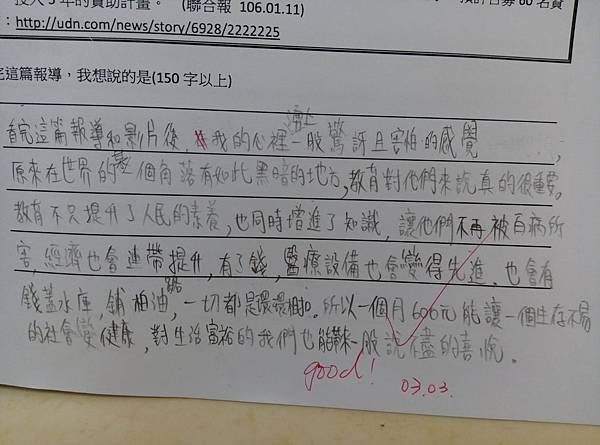 投入 5 年的資助計畫。 (聯合報 106.01.11)
60 名資
: http://udn.com/news/story/6928/2222225
完這篇報導，我想說的是(150 字以上)
湧上
看完這篇報導和影片後，我的心裡一股驚訝且害怕的感覺，
原來在世界的某個角落有如此黑暗的地方，教育對他們來說真的很重要，
教育不只提升了人民的素養，也同時增進了知識，讓他們不再被百病所
害，經濟也會連帶提升，有了錢，醫療設備也會變得先進，也會有
錢蓋水庫，鋪柏油路，一切都是環環相扣。所以一個月600元能讓一個生存不易
的社會變健康，對生活富裕的我們也能帶來一股說不盡的喜悅。
good!
03.03.